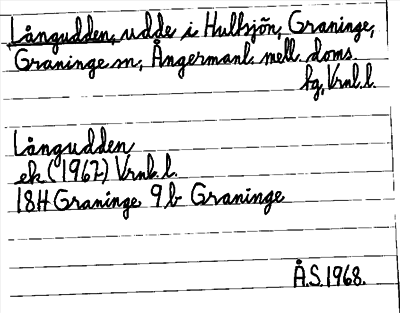 Långudden, udde i Hulksjön, Graninge,
Graninge sn, Ångermanl. mell. doms.
fg, Vrnl. l.
Långudden
ek (1967) Vrnl. l.
18H Graninge 9b Graninge
Å.S. 1968.